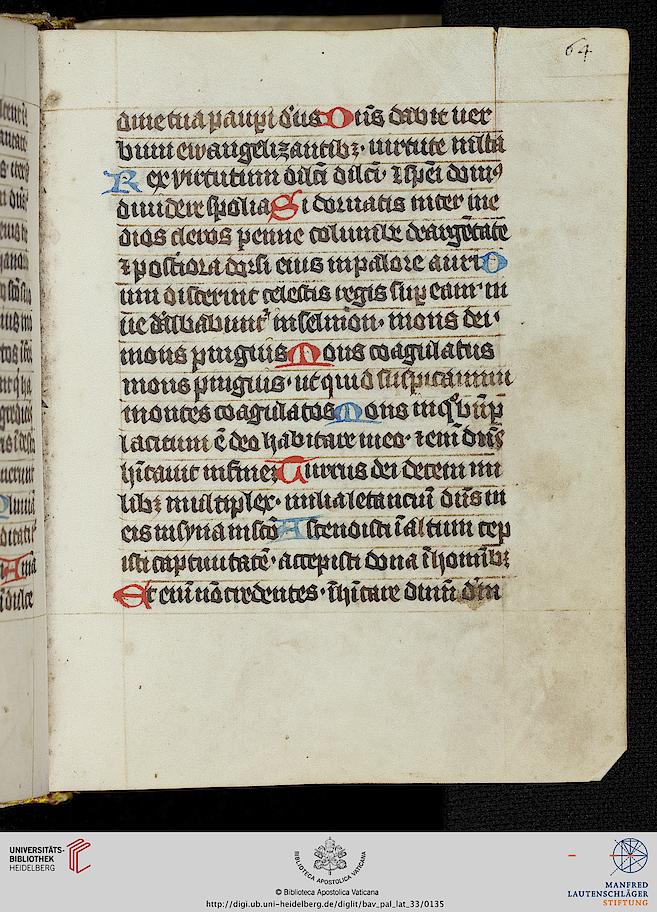 64
dine tua paupi d'us Dn̄s dabit uer
bum ewangelizantibꝫ · uirtute ml̄ta
Rex virtutum dilc̄i dilc̄i · ⁊ sp̄ei domꝰ
diuidere spolia Si dormiatis inter me
dios cleros penne columbe deargētate
⁊ postiora dorsi eius in palore auri D
um discernit celestis reges sup eam ni
ue dealbabunt᷑ in selmon · mons dei ·
mons pinguis Mons coagulatus
mons pinguis · ut quid suspicamini
montes coagulatos Mons in q̊ bn̄p
lacitum ē deo habitare in eo · ⁊ em̄ dn̄s
hītauit in finē Currus dei decem mi
libꝫ multiplex · milia letanciū dn̄s in
eis in syna in sc̄o Ascendisti ī altum cep
isti captiuitatē · accepisti dona ī hominibꝫ
Et eni nō credentes · īhītare dn̄m dm̄
UNIVERSITÄTS-
BIBLIOTHEK
HEIDELBERG
BIBLIOTECA APOSTOLICA VATICANA
© Biblioteca Apostolica Vaticana
http://digi.ub.uni-heidelberg.de/diglit/bav_pal_lat_33/0135
MANFRED
LAUTENSCHLÄGER
STIFTUNG